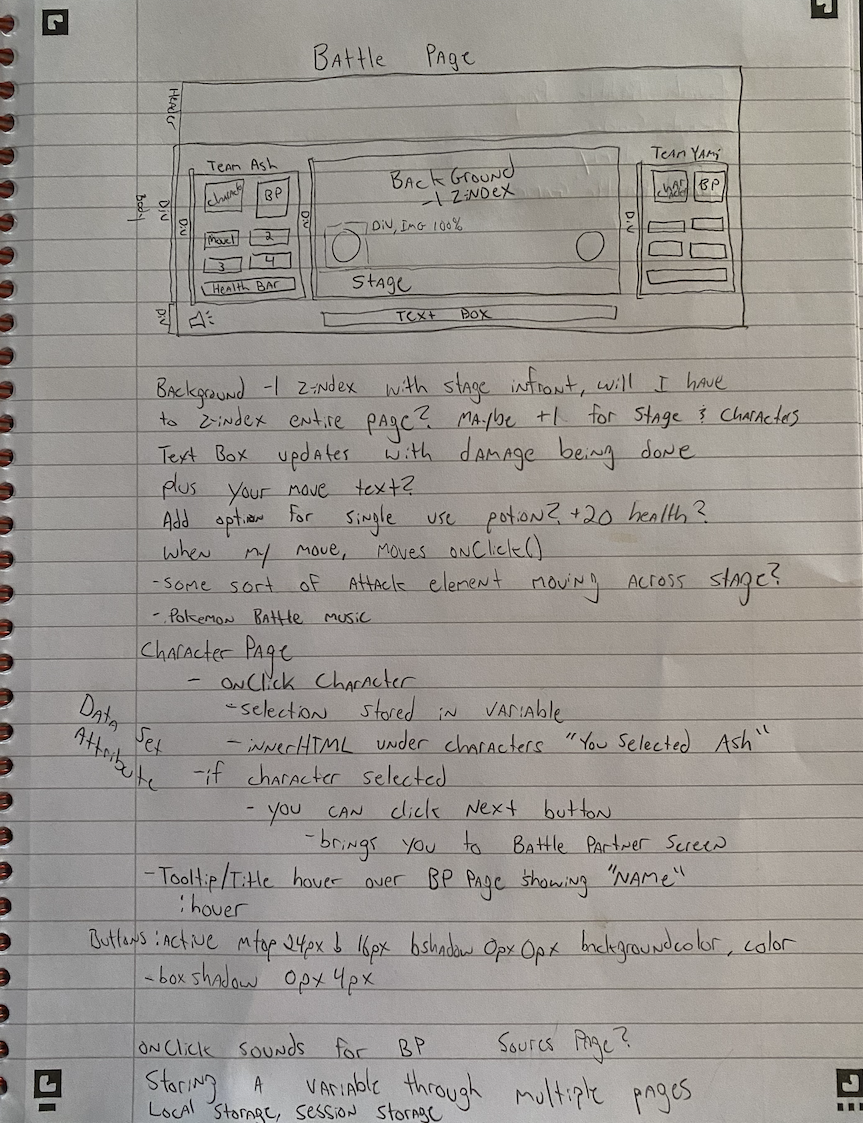 Battle Page
Header
Body
Div
Div
Div
Div
Div
Team Ash
Charact
BP
Move 1
2
3
4
Health Bar
BackGround
-1 Zindex
Div, Img 100%
Stage
Text Box
Team Yami
Character
BP
Background -1 Z-index with stage infront, will I have
to z-index entire page? Maybe +1 for stage & characters
Text Box updates with damage being done
plus your move text?
Add option for single use potion? +20 health?
When my move, moves onClick()
-some sort of Attack element moving across stage?
-Pokemon Battle music
Character Page
- onClick Character
-selection stored in variable
Data Set
Attribute
-innerHTML under characters "You Selected Ash"
-if character selected
- you can click Next button
-brings you to Battle Partner Screen
-Tooltip/Title hover over BP Page showing "NAME"
:hover
Buttons :Active mtop 24px b 16px bshadow 0px 0px backgroundcolor, color
-box shadow 0px 4px
onClick sounds for BP Source Page?
Storing a variable through multiple pages
Local storage, session storage